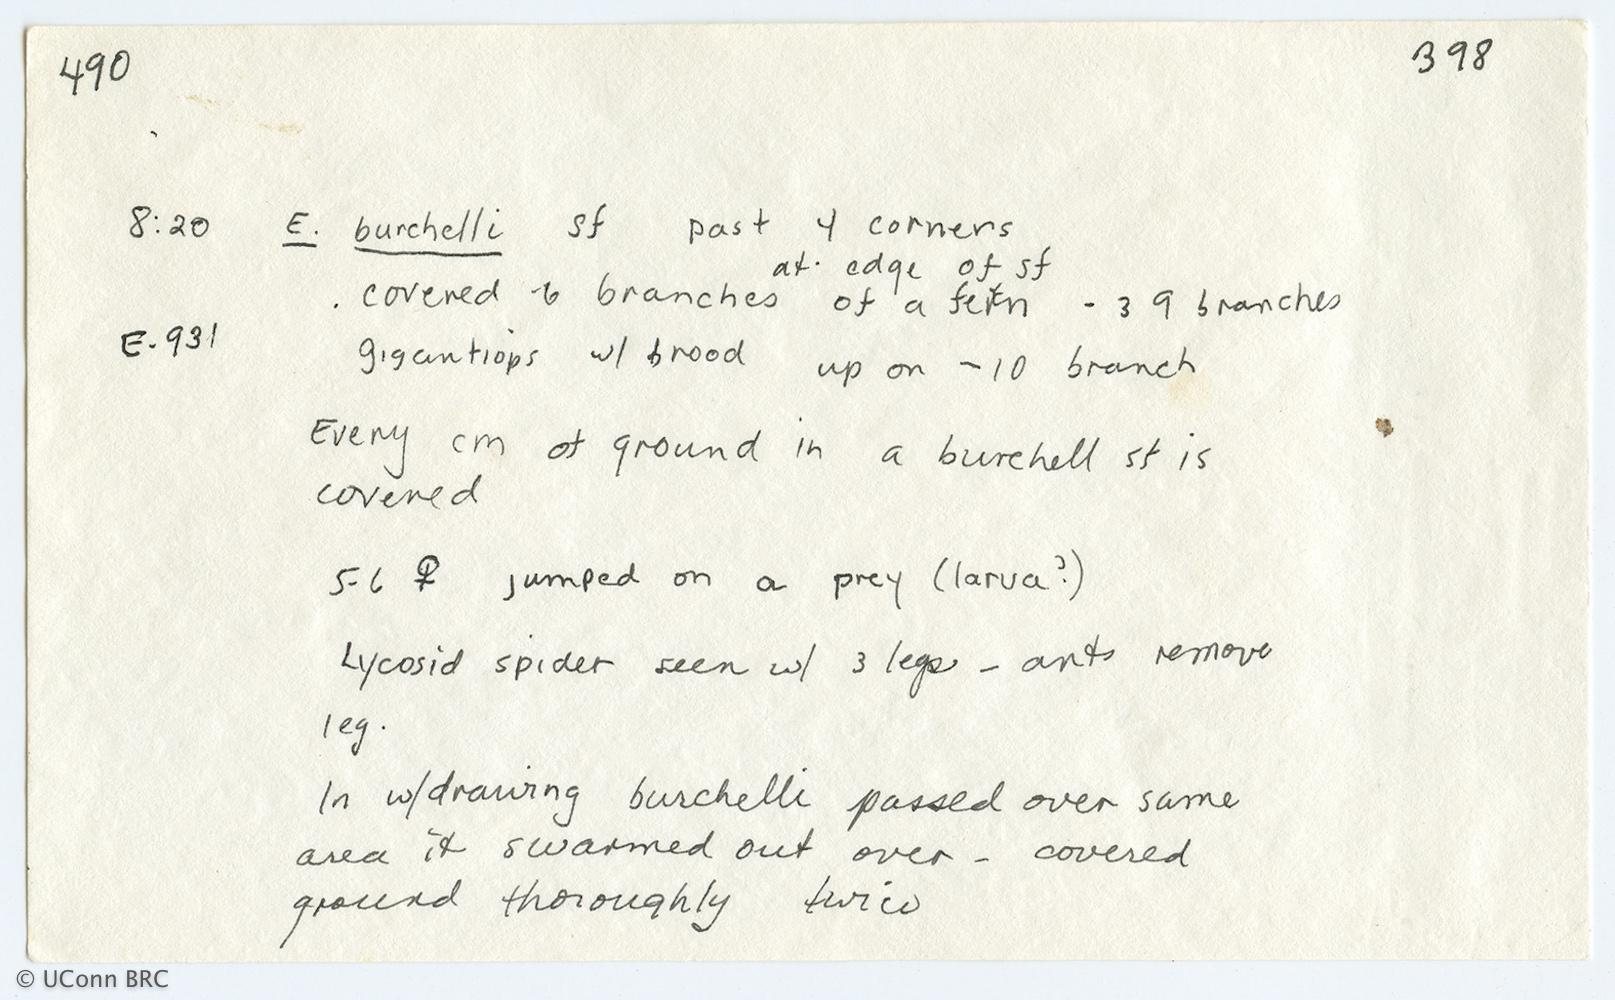 490 398
8:20 E. burchelli sf past 4 corners
at edge of sf
. covered 6 branches of a fern - 3 9 branches
E-931 gigantiops w/ brood up on ~10 branch
Every cm of ground in a burchell sf is
covered
5-6 ♀ jumped on a prey (larva?)
Lycosid spider seen w/ 3 legs - ants remove
leg.
In w/drawing burchelli passed over same
area it swarmed out over - covered
ground thoroughly twice
© UConn BRC